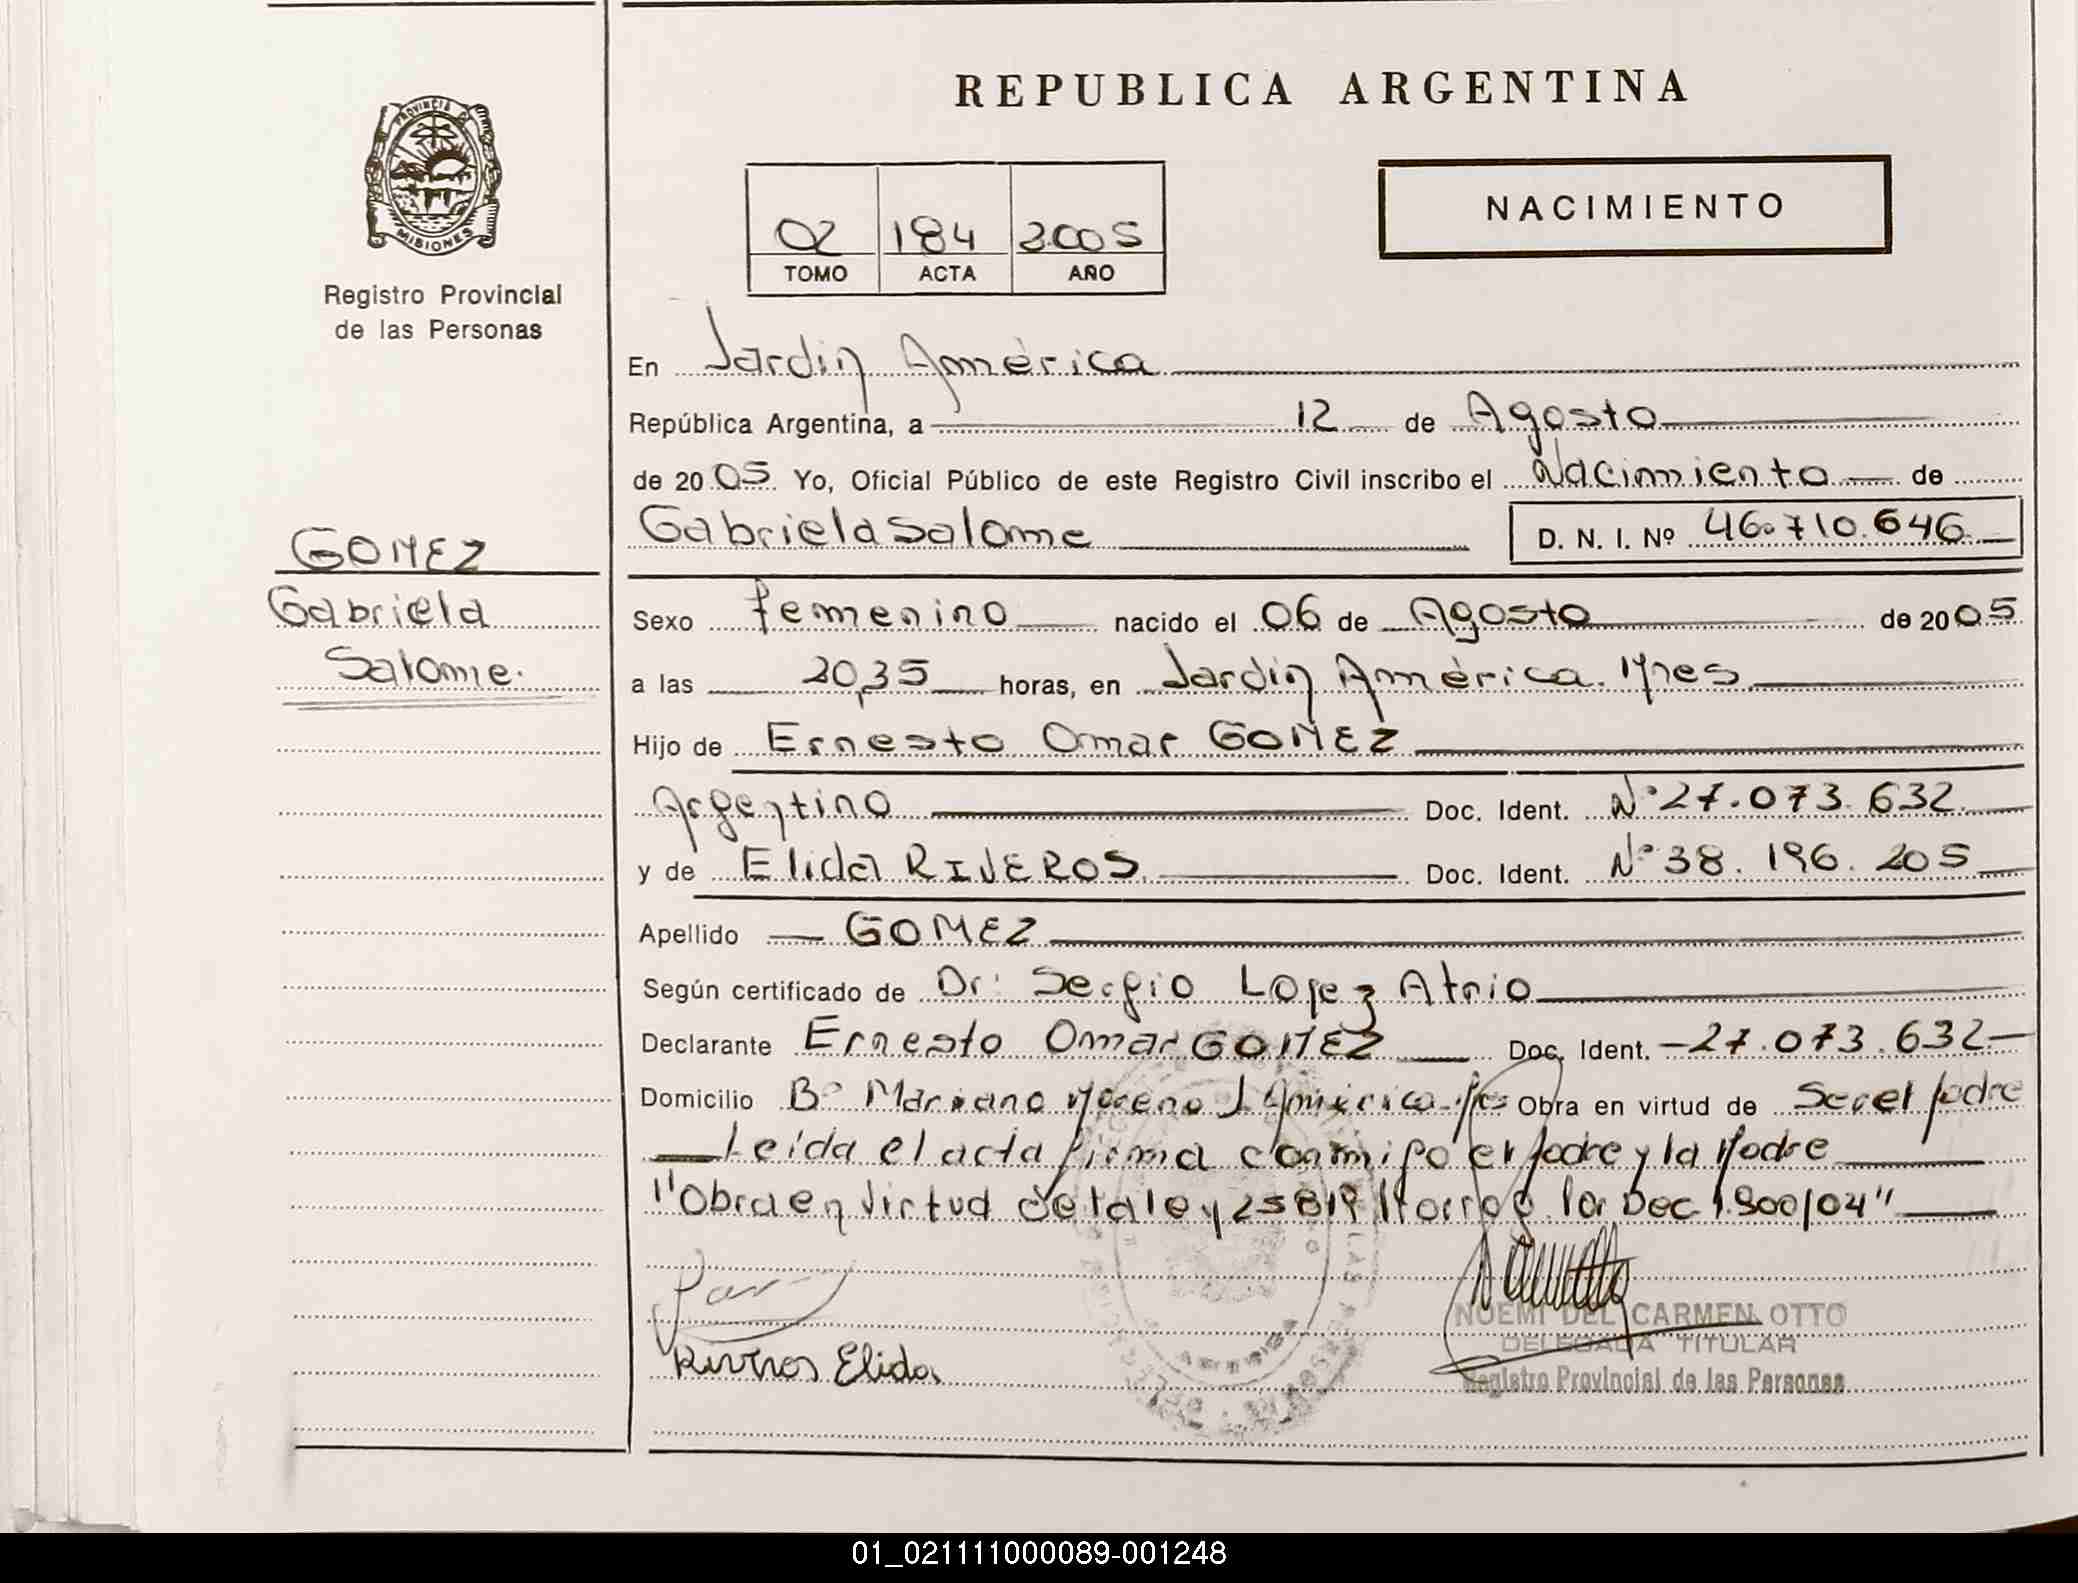 REPUBLICA ARGENTINA
PROVINCIA DE
MISIONES
Registro Provincial
de las Personas
NACIMIENTO
02 184 2.005
TOMO ACTA AÑO
En Jardin América
República Argentina, a 12 de Agosto
de 2005 Yo, Oficial Público de este Registro Civil inscribo el Nacimiento de
Gabriela Salome D. N. I. Nº 46.710.646
GOMEZ
Gabriela
Salome.
Sexo femenino nacido el 06 de Agosto de 2005
a las 20,35 horas, en Jardin América. Mnes
Hijo de Ernesto Omar GOMEZ
Argentino Doc. Ident. Nº 27.073.632
y de Elida RIVEROS Doc. Ident. Nº 38.196.205
Apellido GOMEZ
Según certificado de Dr: Sergio Lopez Atrio
Declarante Ernesto Omar GOMEZ Doc. Ident. 27.073.632
Domicilio Bº Mariano Moreno J. América. Obra en virtud de Ser el padre
Leida el acta firma conmigo el padre y la Madre
"Obra en virtud de la ley 25819 Prorrog. Por Dec 1.900/04"
Riveros Elida
NOEMI DEL CARMEN OTTO
DELEGADA TITULAR
Registro Provincial de las Personas
01_021111000089-001248